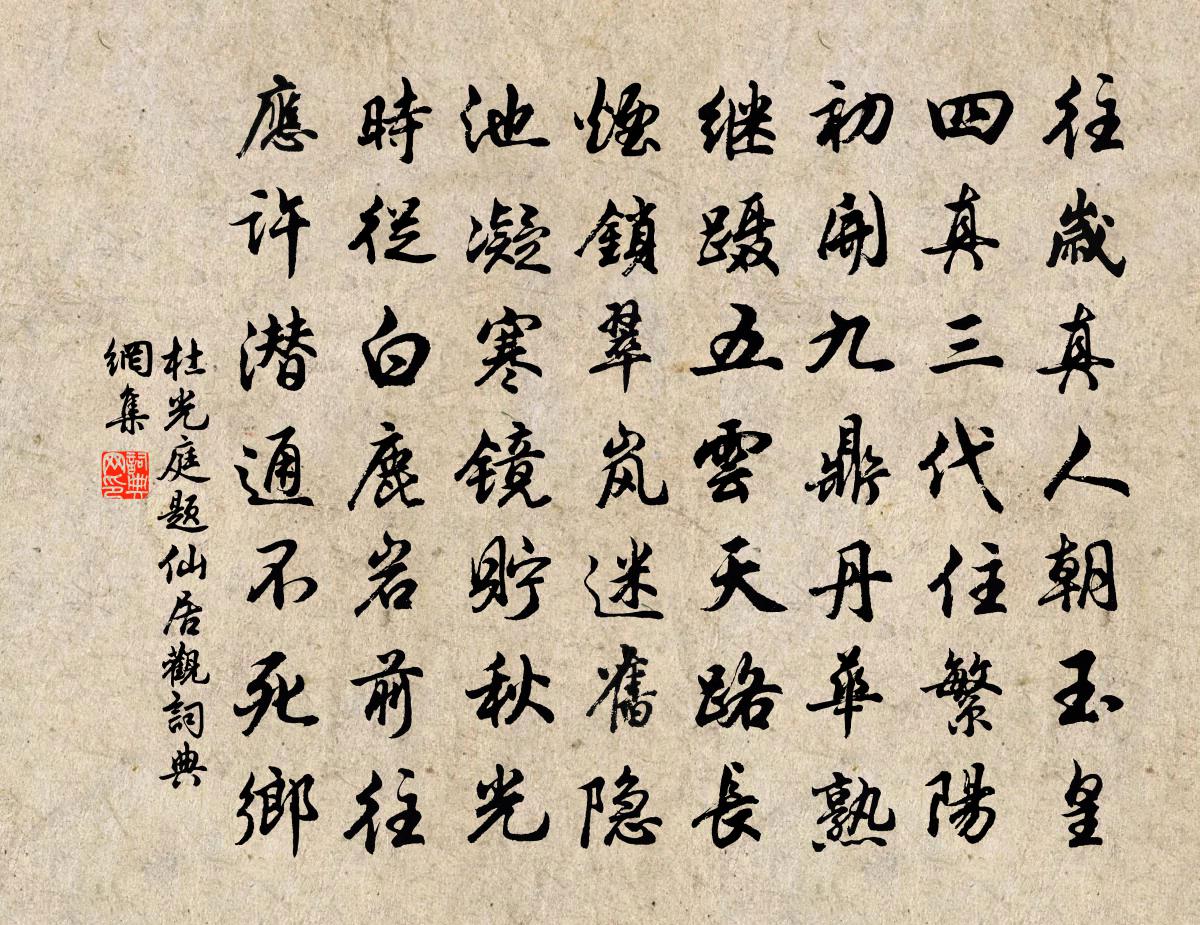 往歲真人朝玉皇
四真三代住繁陽
初開九鼎丹華熟
继蹑五雲天路長
煙鎖翠岚迷舊隐
池凝寒镜貯秋光
時從白鹿岩前往
應許潜通不死鄉
杜光庭题仙居觀詞典
網集
詞典
网印